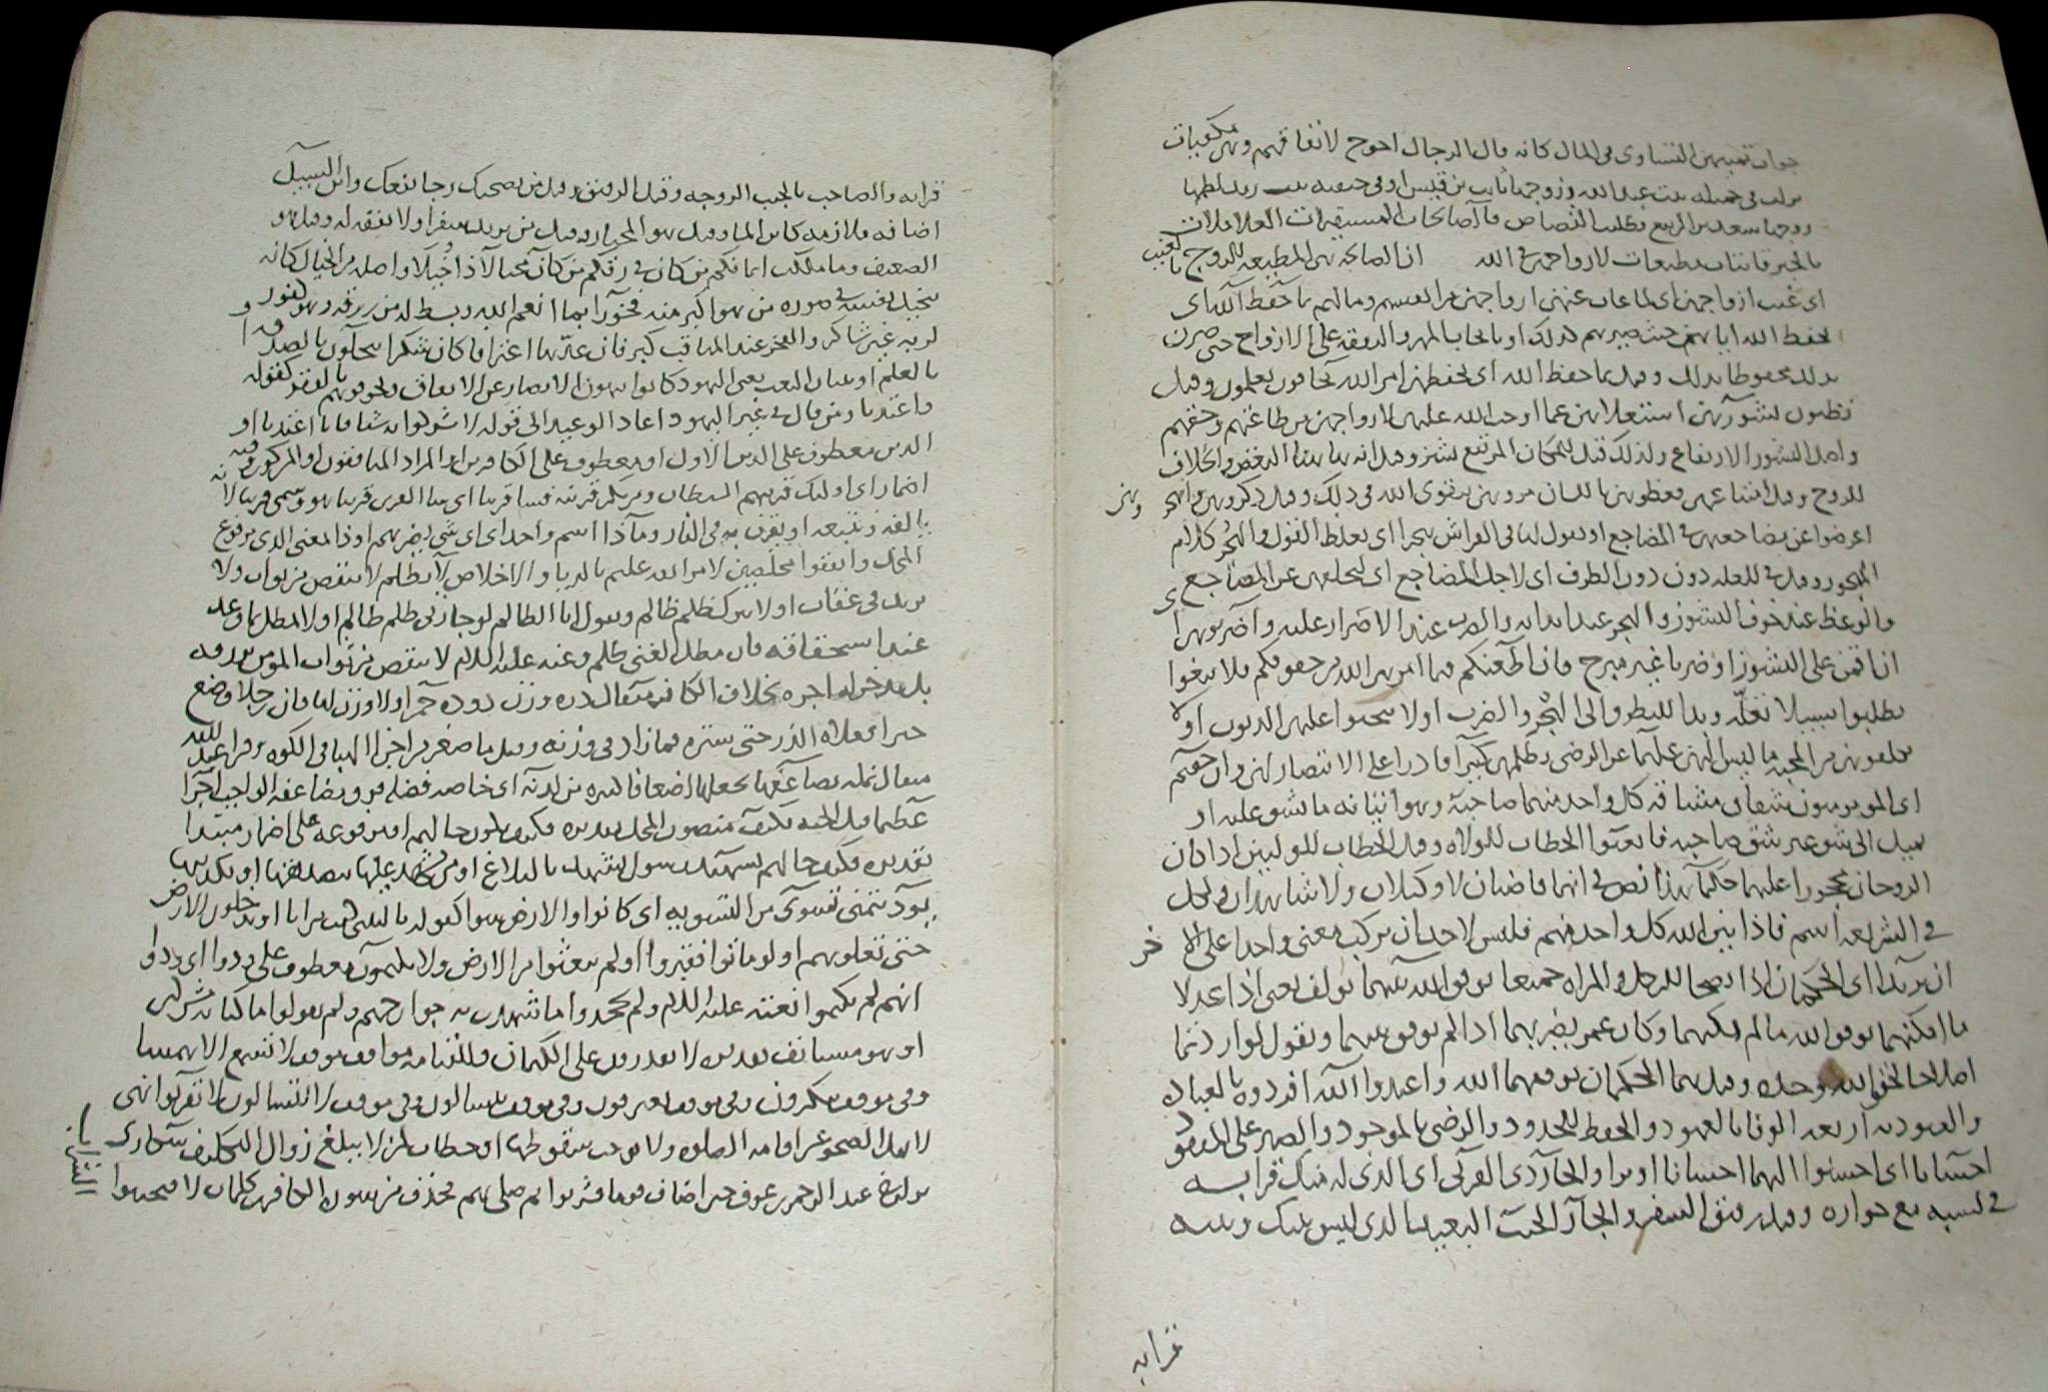 جواب تمنيهن التساوى فى المال كانه قال الرجال احوج لانفاقهم وهن مكفيات
نزلت فى جميله بنت عبد الله وزوجها ثابت بن قيس او فى حبيبه بنت زيد لطمها
زوجها سعد بن الربيع فطلب القصاص فالصالحات المستقيمات العاملات
بالخير قانتات مطيعات لازواجهن فى الله ان الصالحه هى المطيعه للزوج بالغيب
اى غيب ازواجهن اى لما غاب عنهن ازواجهن من انفسهم ومالهم بما حفظ الله اى
بحفظ الله اياهن حيث صيرهم كذلك او بايجاب المهر والنفقه على الازواج حتى صرن
بذلك محفوظا بذلك وقيل بما حفظ الله اى بحفظهن امر الله تخافون تعلمون وقيل
تظنون نشوزهن استعلاهن عما اوجب الله عليهن لازواجهن من طاعتهم وحقهم
واصل النشوز الارتفاع ولذلك قيل للمكان المرتفع نشز وقيل انه هاهنا البغض والخلاف
للزوج وقيل فعظوهن باللسان مروهن بتقوى الله فى ذلك وقيل ذكروهن واهجروهن
اعرضوا عن مضاجعهن فى المضاجع او يقول لها فى الفراش هجرا اى يغلظ القول والهجر كلام
المهجور وقيل فى للعله دون الظرف اى لاجل المضاجع اى لتخلفهن عن المضاجع
والوعظ عند خوف النشوز والهجر عند ابدائه والضرب عند الاصرار عليه واضربوهن
ان اقمن على النشوز اوضربا غير مبرح فان اطعنكم فيما امرهن الله من حقوقكم فلا تبغوا
تطلبوا سبيلا تعلة وقيل للنظر الى الهجر والضرب او لا تجنوا عليهن الذنوب او لا
تكلفوهن من المحبه ما ليس لهن عليا عن الرضى بظلمهن كبيرا قادرا على الانتصار لهن وان خفتم
اى المومنون شقاق مشاقه كل واحد منهما صاحبه وهو اتيانه ما يشق عليه او
يميل الى شق غير شق صاحبه فابعثوا الخطاب للولاه وقيل الخطاب للوليين اذا كان
الزوجان محجورا عليهما حكما هذا نص فى انهما قاضيان لا وكيلان ولا شاهدان ولكل
فى الشريعه اسم فاذا بين الله كل واحد منهم فليس لاحد ان يركب معنى واحدا على الاخر
ان يريدا اى الحكمان اذا نصحا للرجل والمراه جميعا يوفق الله بينهما تولف يعنى اذا عدلا
ما امكنهما يوفق الله ما لم يمكنهما وكان عمر يضربهما اذا لم يوفق بينهما ويقول لو اردتما
اصلاحا لوفق الله وحده وقيل هما الحكمان يوفقهما الله واعبدوا الله افردوه بالعباده
والعبوديه اربعه الوفا بالعهود والحفظ للحدود والرضى بالموجود والصبر على المفقود
احسانا اى احسنوا اليهما احسانا والجار ذى القربى اى الذى له منك قرابه
فى نسبه مع جواره وقيل رفيق السفر والجار الجنب البعيد الذى ليس بينك وبينه
قرابه
قرابه والصاحب بالجنب الزوجه وقيل الرفيق وقيل من يصحبك رجا نفعك وابن السبيل
اضافه ملازمه كابن الما وقيل هو المجتاز وقيل من يريد سفرا ولا نفقه له وقيل هو
الضعيف وما ملكت ايمانكم من كان فى رقكم من كان مختالا ذا خيلا واصله من الخيال كانه
يتخيل نفسه فى صوره من هو اكبر منه فخورا بما انعم الله وبسط له من رزقه وهو كفور
لربه غير شاكر والفخر عند المناقب كبر فان عدها اعترافا كان شكرا يبخلون بالصدقه او
بالعلم او ببيان النعت يعنى اليهود كانوا ينهون الانصار عن الانفاق ويخوفونهم بالفقر كقوله
واعتدنا ومن قال فى غير اليهود اعاد الوعيد الى قوله لا تشركوا به شيا قال اعتدنا او
الذين معطوف على الذين الاول او معطوف على الكافرين والمراد المنافقون او المشركون وفيه
اضمار اى اولئك قرينهم الشيطان ومن يكن قرينه فسا قرينا اى سا القرين قرينا هو وسمى قرينا لانه
يالفه ويتبعه او يقرن به فى النار وماذا اسم واحد اى اى شى يضرهم او ذا بمعنى الذى مرفوع
المحل وانفقوا مخلصين لامر الله عليم بالريا والاخلاص لا يظلم لا ينقص من ثواب ولا
يزيد فى عقاب او لا يترك ظلم ظالم وتقول انا الظالم لو جاز لى ظلم ظالم او لا مطل بما وعد
عند استحقاقه فان مطل الغنى ظلم وعنه عليه السلام لا ينقص من ثواب المومن
بل اجره بخلاف الكافر مثقال ذره وزن دوده حمرا ولا وزن لها فان رجلا وضع
خبزا فعلاه الذر حتى ستره فما زاد فى وزنه وقيل ما صغر من اجزا الهبا فى الكوه وقرا عبد الله
مثقال نمله يضاعفها يجعلها اضعافا كثيره من لدنه اى خاصه فضله فوق مضاعفه الواجب اجرا
عظيما قيل الجنه فكيف منصوب المحل تقديره فكيف يكون حالهم او مرفوعه على اضمار مبتدا
تقديره فكيف حالهم بشهيد رسول يشهد بالبلاغ او من يشهد عليها بتصديقها او تكذيبها
يود يتمنى تسوى من التسويه اى كانوا والارض سوا كقوله يا ليتنى كنت ترابا او يدخلون الارض
حتى تعلوهم او لو ماتوا فقبروا او لم يبعثوا من الارض ولا يكتمون معطوف على يودوا اى ودوا
انهم لم يكتموا نعته عليه السلام ولم يجحدوا ما شهدت به جوارحهم ولم يقولوا ما كنا مشركين
او هو مستانف تقديره لا يقدرون على الكتمان وللقيامه مواقف موقف لا تسمع الا همسا
وفى موقف ينكرون وفى موقف يعترفون وفى موقف يتسالون وفى موقف لا يتسالون لا تقربوا نهى
لاهل الصحو عن اقامه الصلوه ولا يوجب سقوطها او خطاب لمن لا يبلغ زوال التكليف سكارى
نزلت فى عبد الرحمن بن عوف حين اضاف قوما فشربوا ثم صلى بهم فحذف من سوره الكافرين كلمات لا فتجنبوا